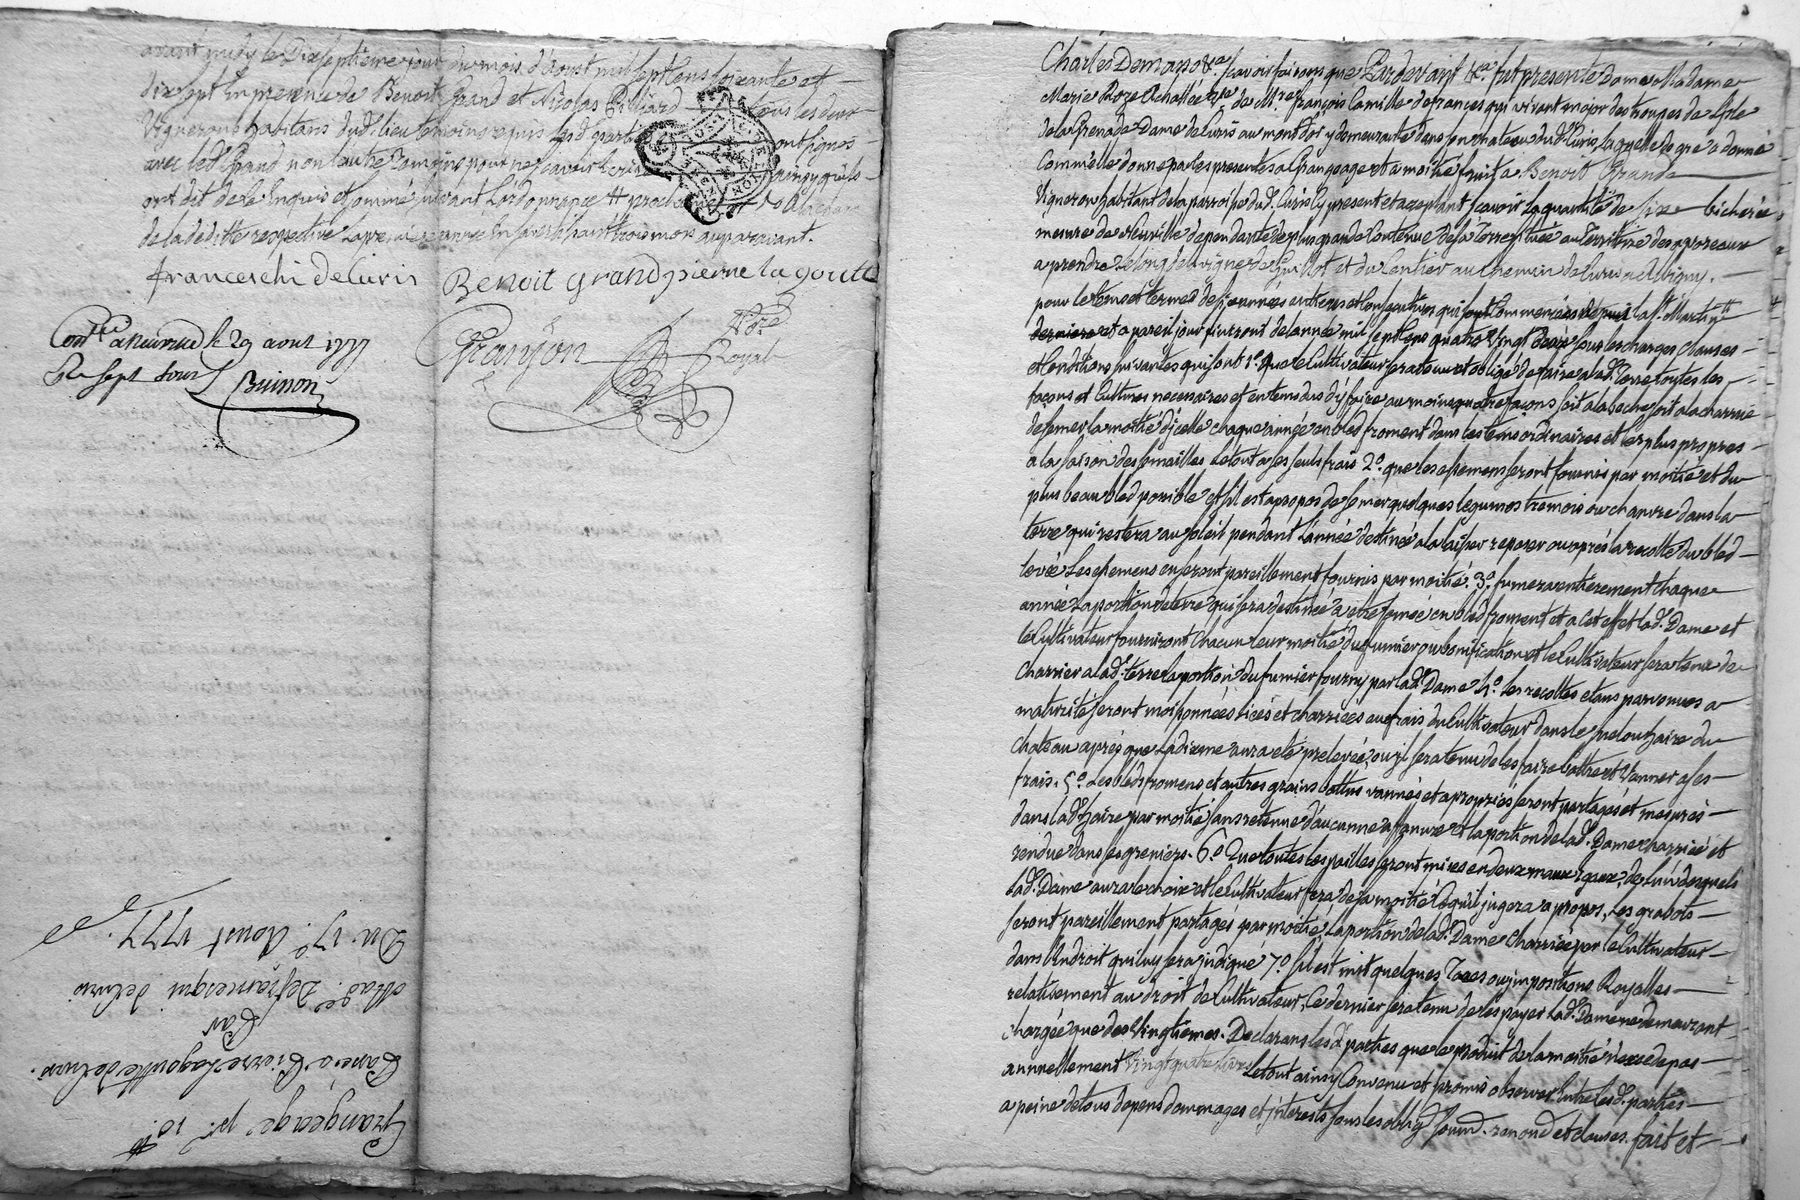 avant midy le Dixseptieme jour du mois d'Aoust mil sept cens soixante et
dixsept En presence de Benoit Grand et Nicolas Billiard tous les deux
Vignerons habitans dud. lieu temoins requis lesd. parties ont signés
avec led. Grand non l'autre temoin pour ne sçavoir Ecrire ainsy qu'ils
ont dit de le Enquis et sommé suivant L'ordonnance
de la deditte respective la premiere année En s'avertissant trois mois auparavant.
franceschi de Curis Benoit Grand pierre la goutte
Granjon Nore Royal
Conllé a Neuville le 29 aout 1777
Ru sept sous Buinon
Grangeage pr. 10.
Passé a Pierre Lagoutte de Curis.
Par
Made. Defrancesqui de Curis
Du 17e. Aoust 1777.
Charles Demasso &a. sçavoir faisons que Pardevant &a. fut presente Dame Madame
Marie Roze Achallée vve. de Mre françois Camille defrancesqui vivant major des troupes de l'isle
de la Grenade Dame de Curis au mont d'or y demeurante dans son chateau dud. Curis, laquelle de gré a donné
Comme elle donne par les presentes a Grangeage et a moitié fruit a Benoit Grand
Vigneron habitant de la parroisse dud. Curis Cy present et aceptant sçavoir la quantité de six bicherées
mesure de Neuville dependante de plus grande Contenue de la Terre située au Territoire des
a prendre le long de la vigne de Guillot et du Sentier au Chemin de Curis a Albigny.
pour le tems et termes de six années entieres et Consecutives qui sont Commencées depuis la St. Martin
derniere et a pareil jour finiront de l'année mil sept cens quatre Vingt Deux sous les charges clauses
et Conditions suivantes qui sont 1o. que le Cultivateur sera tenu et obligé de faire a lad. Terre toutes les
façons et Cultures necessaires et en tems dus d'y faire au moins quatre façons soit a la beche soit a la charrue
de semer la moitié d'icelle chaque année en bled froment dans les tems ordinaires et les plus propres
a la saison des semailles le tout a ses seuls frais 2o. que les semens seront fournis par moitié et du
plus beau bled possible et s'il est a propos de semer quelques legumes tremois ou chanvre dans la
terre qui restera au soleil pendant l'année destinée a la laisser reposer ou après la recolte du bled
levée Les semens en seront pareillement fournis par moitié. 3o. fumera entierement Chaque
année la portion de terre qui sera destinée a etre semée en bled froment et a Cet effet lad. Dame et
le Cultivateur fourniront Chacun leur moitié du fumier ou bonification et le Cultivateur sera tenu de
Charrier a lad. terre la portion du fumier fourny par lad. Dame 4o. les recoltes etans parvenues a
maturité seront moissonnées liées et charriées aux frais du Cultivateur dans le suel ou haire du
Chateau après que La dixme aura eté prelevée, ou il sera tenu de les faire battre et Vanner a ses
frais. 5o. Les bleds fromens et autres grains battus vannés et apropriés seront partagés et mesurés
dans lad. haire par moitié sans retenue d'aucunne affanure et la portion de lad. Dame charriée et
rendue dans ses greniers. 6o. Que toutes les pailles seront mises en deux monceaux Egaux, de l'un desquels
lad. Dame aura le choix et le Cultivateur fera de sa moitié Ce qu'il jugera a propos, Les grabots
seront pareillement partagés par moitié la portion de lad. Dame Charriée par le Cultivateur
dans l'Endroit qui luy sera indiqué 7o. s'il est mis quelques Taxes ou impositions Royalles
relativement au droit de Cultivateur, Ce dernier sera tenu de les payer lad. Dame ne demeurant
chargée que des Vingtiemes. Declarans les d. parties que le produit de la moitié n'exsede pas
annuellement Vingt quatre livres Le tout ainsy Convenu et promis observer Entre lesd. parties
a peine de tous depens dommages et interests sous les oblig soumd. renond et clauses. fait et